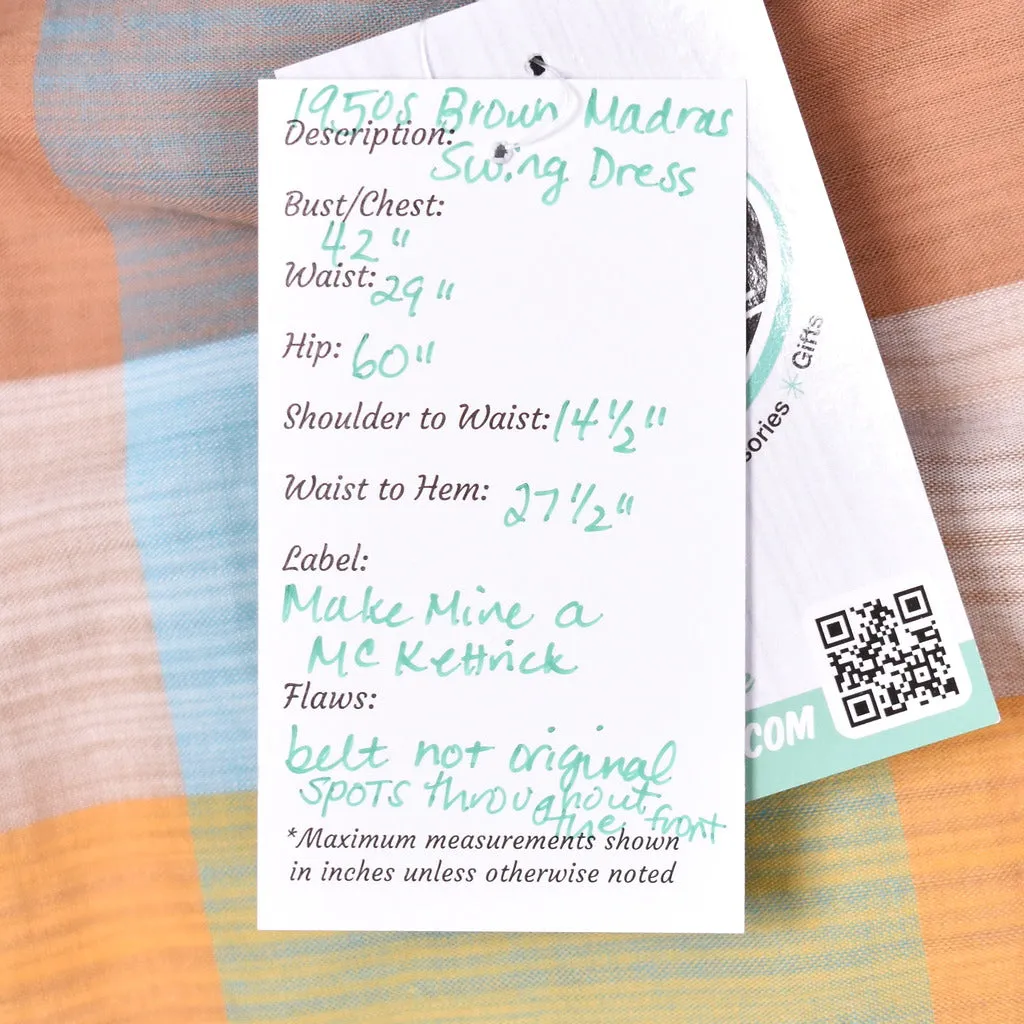 1950s Brown Madras
Description:
Swing Dress
Bust/Chest:
42"
Waist: 29"
Hip: 60"
Shoulder to Waist: 14 1/2"
Waist to Hem: 27 1/2"
Label:
Make Mine a
McKettrick
Flaws:
belt not original
spots throughout
the front
*Maximum measurements shown
in inches unless otherwise noted
Gifts
.COM